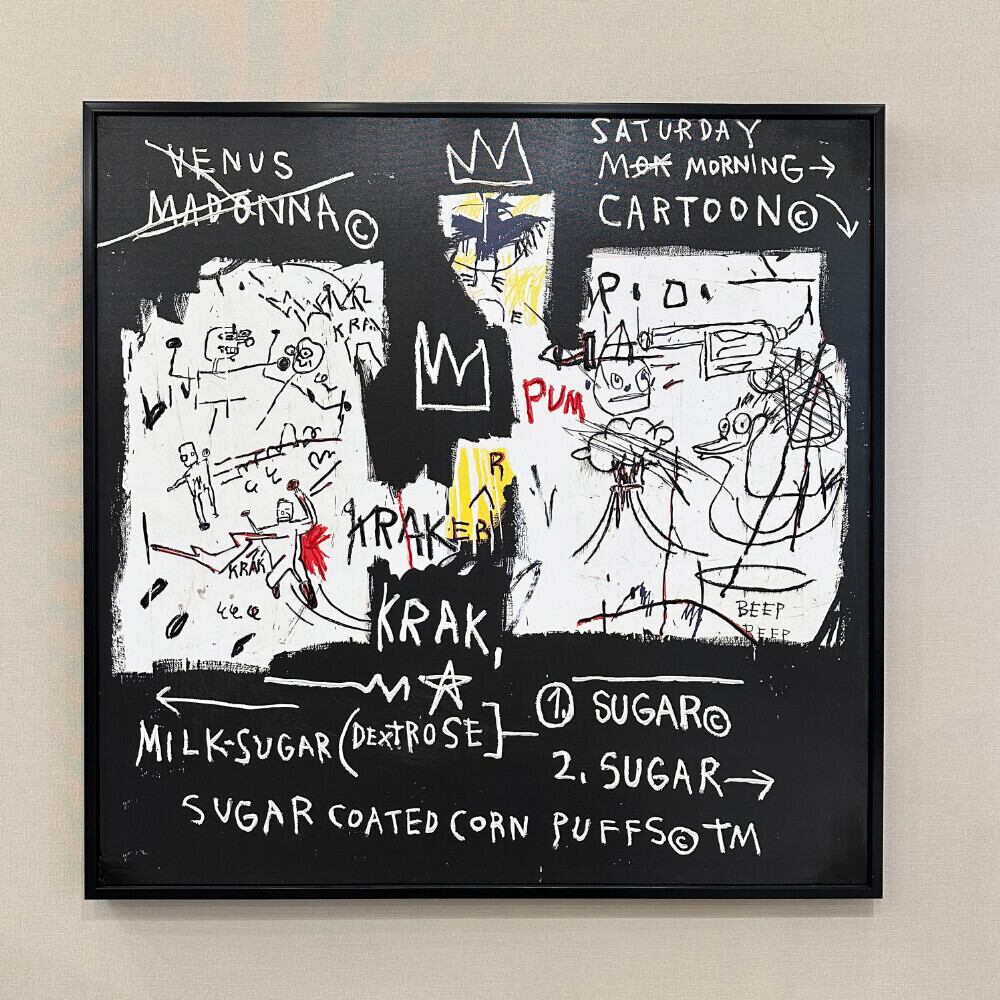 VENUS
MADONNA©
SATURDAY
MOR MORNING→
CARTOON©
E
P. O.
KRA
A
PUM
R
KRAKER
KRAK
KRAK,
BEEP
BEEP
MILK-SUGAR (DEXTROSE]
1. SUGAR©
2. SUGAR→
SUGAR COATED CORN PUFFS© TM